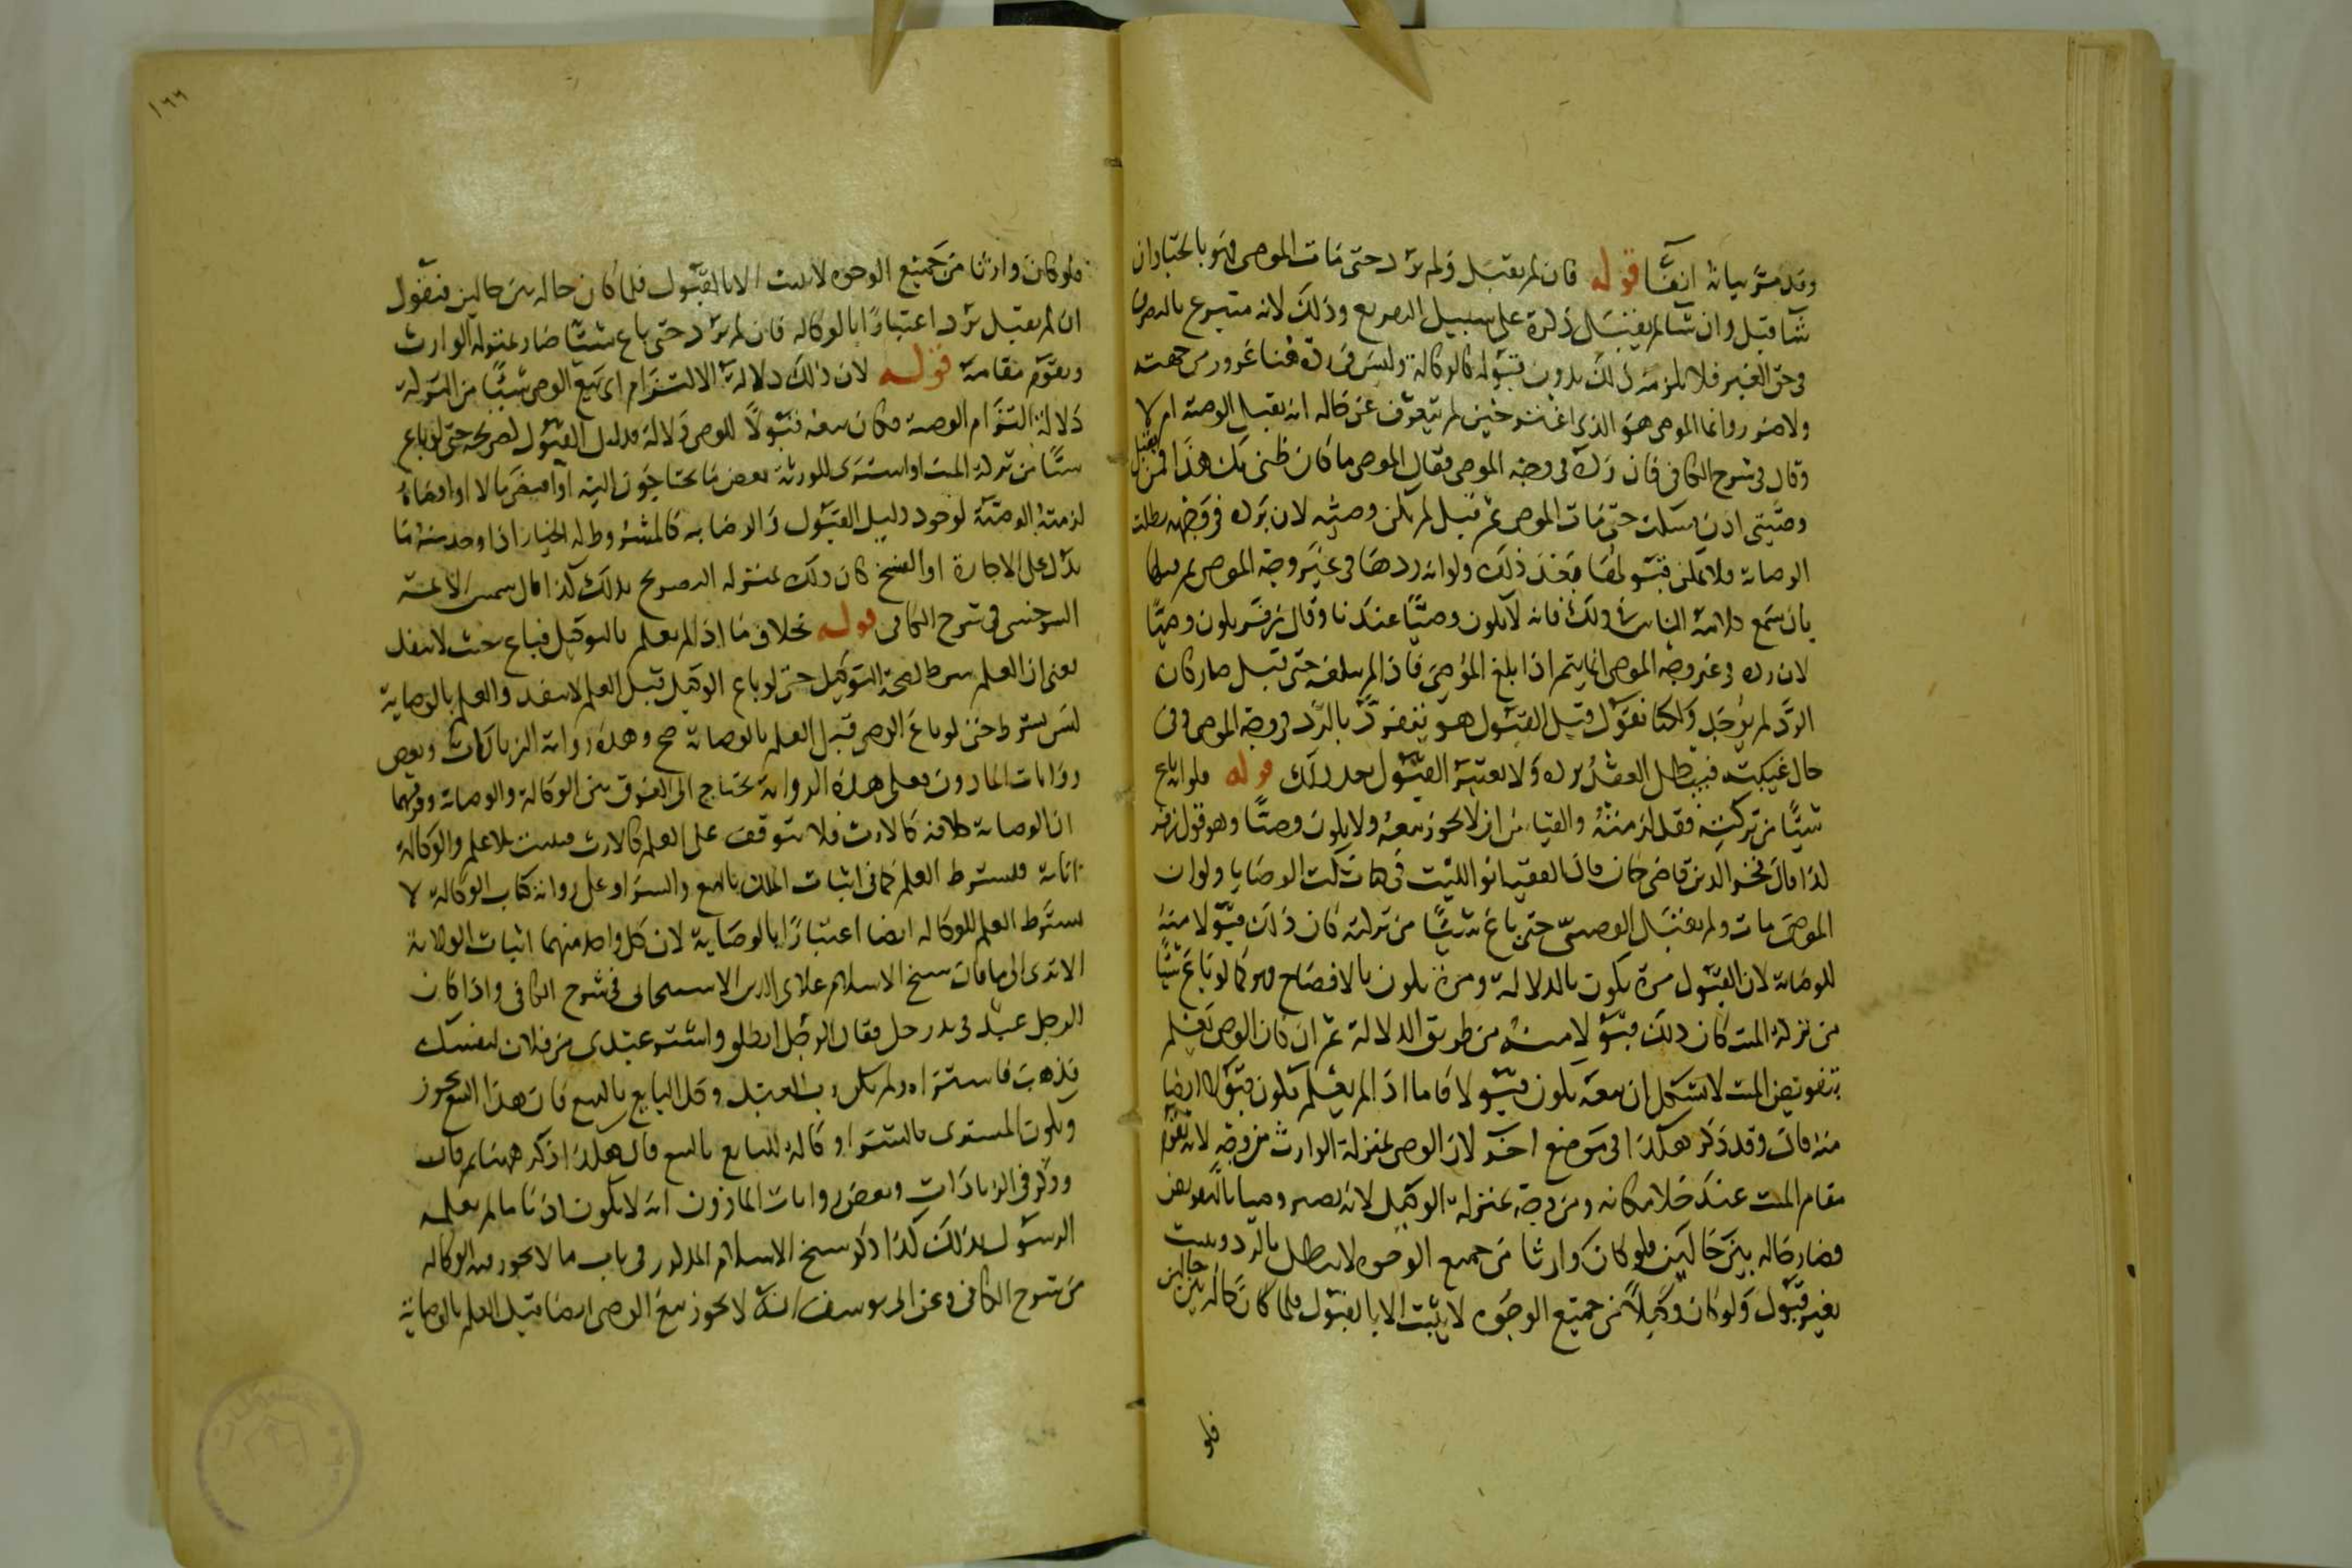 وقد مر بيانه انفا قوله فان لم يقبل ولم يرد حتى مات الموصى فهو بالخيار ان
شا قبل وان شا لم يقبل ذكره على سبيل التصريع وذلك لانه متبرع بالتصرف
في حق الغير فلا يلزمه ذلك بدون قبوله كالوكالة وليس في رده هنا غرور من جهته
ولا ضرر وانما الموصى هو الذي اغتر حين لم يتعرف عن حاله انه يقبل الوصية ام لا
وقال في شرح الكافي فان رده في وجه الموصى فقال الموصى ما كان ظني بك هذا فمن يقبل
وصيتي اذن فسكت حتى مات الموصى ثم قبل لم يكن وصيه لان برده في وجهه بطلت
الوصاية فلا يمكن قبولها بعد ذلك ولو انه ردها في غير وجه الموصى ثم قبلها
بان سمع الناس ذلك فانه لا يكون وصيا عندنا وقال زفر يكون وصيا
لان رده في غير وجه الموصى انما يتم اذا بلغ الموصى فاذا لم يبلغه حتى قبل صار كان
الرد لم يوجد ولكنا نقول قبل القبول هو ينفرد بالرد في وجه الموصى وفي
حال غيبته فيبطل العقد برده ولا يعتبر القبول بعد ذلك قوله فلو انه باع
شيئا من تركته فقد لزمته والقياس ان لا يجوز بيعه ولا يكون وصيا وهو قول زفر
كذا قال فخر الدين قاضى خان قال الفقيه ابو الليث في كتاب نكت الوصايا ولو ان
الموصى مات ولم يقبل الوصى حتى باع شيئا من تركته كان ذلك قبولا منه
للوصاية لان القبول مرة يكون بالدلالة ومرة يكون بالافصاح فهو كما لو باع شيئا
من تركة الميت كان ذلك قبولا منه من طريق الدلالة ثم ان كان الوصى يعلم
بتفويض الميت لا يشكل ان بيعه يكون قبولا فاما اذا لم يعلم يكون قبولا ايضا
منه قال وقد ذكر هكذا في موضع اخر لان الوصى بمنزلة الوارث من وجه لانه يقوم
مقام الميت عند خلا مكانه ومن وجه بمنزلة الوكيل لانه يصير وصيا بالتفويض
فصار حاله بين حالين فلو كان وارثا من جميع الوجوه لا يبطل بالرد ويثبت
بغير قبول ولو كان وكيلا من جميع الوجوه لا يثبت الا بالقبول فلما كان حاله بين حالين
فلو
١٦٦
فلو كان وارثا من جميع الوجوه لا يثبت الا بالقبول فلما كان حاله بين حالين فنقول
ان لم يقبل يرد اعتبارا بالوكاله فان لم يرد حتى باع شيئا صار بمنزله الوارث
ويقوم مقامه قوله لان ذلك دلالة الالتزام اى بيع الوصى شيئا من التركة
دلالة التزام الوصية فكان بيعه قبولا للوصى دلالة ودليل القبول كصريحه حتى لو باع
شيئا من تركة الميت او اشترى للورثة بعض ما يحتاجون اليه او اقتضى مالا او اقضاه
لزمته الوصية لوجود دليل القبول والرضا به كالمشروط له الخيار اذا وجد منه ما
يدل على الاجازة او الفسخ كان ذلك بمنزله التصريح بذلك كذا قال شمس الائمة
السرخسى في شرح الكافى قوله بخلاف ما اذا لم يعلم بالتوكيل فباع حيث لا ينفذ
يعنى ان العلم شرط لصحة التوكيل حتى لو باع الوكيل قبل العلم لا ينفذ والعلم بالوصاية
ليس بشرط حتى لو باع الوصى قبل العلم بالوصاية صح وهذه رواية الزيادات وبعض
روايات المأذون فعلى هذه الرواية يحتاج الى الفرق بين الوكالة والوصاية وفرقهما
ان الوصاية خلافه كالارث فلا يتوقف على العلم كالارث فيثبت بلا علم والوكالة
انابة فيشترط العلم كما في اثبات الملك بالبيع والشرا وعلى رواية كتاب الوكالة لا
يشترط العلم للوكاله ايضا اعتبارا بالوصاية لان كل واحد منهما اثبات الولاية
الا ترى الى ما قال شيخ الاسلام علاى الدين الاسبيجابى في شرح الكافى واذا كان
الرجل عبد في يد رجل فقال لرجل انطلق واشتر عبدى من فلان لنفسك
فذهب فاشتراه ولم يكن رب العبد وكل البايع بالبيع فان هذا البيع يجوز
ويكون المشترى بالشرا وكالة للبايع بالبيع قال هكذا ذكر ههنا ثم قال
وذكر في الزيادات وبعض روايات الماذون انه لا يكون اذنا ما لم يعلمه
الرسول بذلك كذا ذكر شيخ الاسلام المذكور في باب ما لا يجوز من الوكاله
من شرح الكافى وعن ابى يوسف انه لا يجوز بيع الوصى ايضا قبل العلم بالوصاية